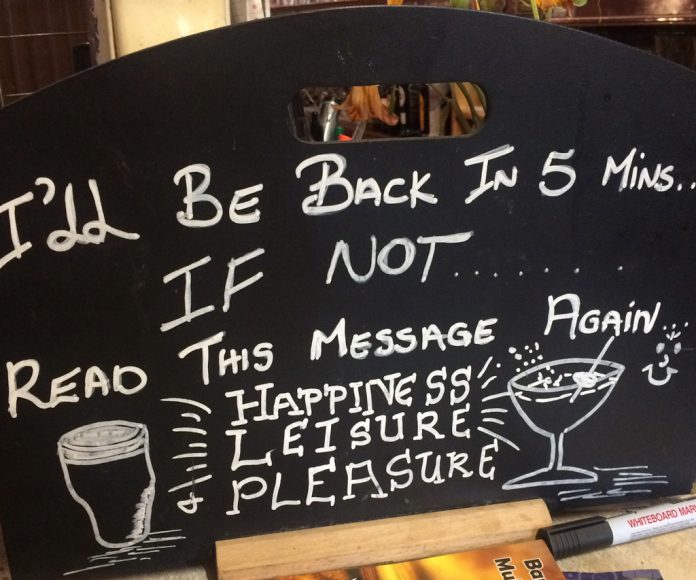 I'll Be Back In 5 Mins..
IF NOT........
READ THIS MESSAGE AGAIN
HAPPINESS
LEISURE
PLEASURE
WHITEBOARD MAR
Ba
Mu